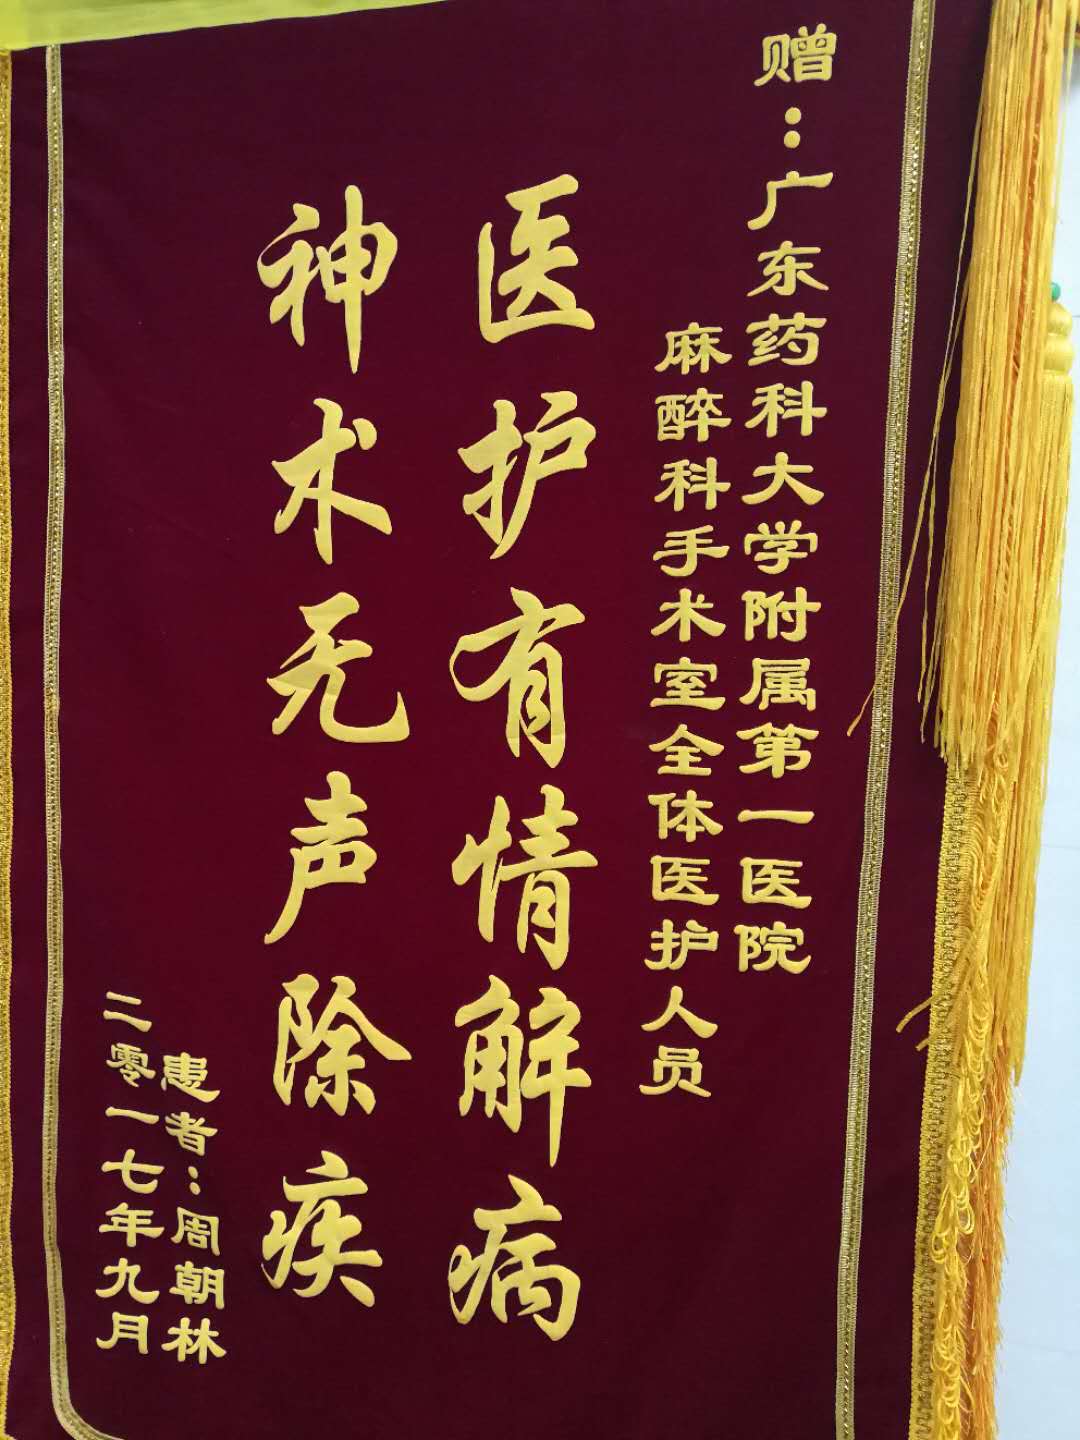 赠：广东药科大学附属第一医院
麻醉科手术室全体医护人员
医护有情解病
神术无声除疾
患者：周朝林
二零一七年九月